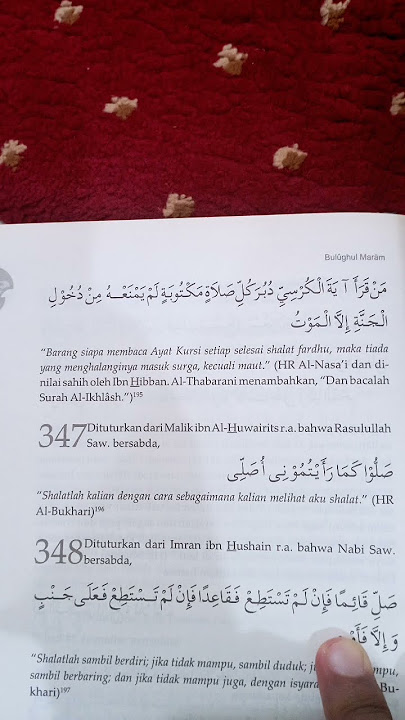 Bulûghul Marâm
مَنْ قَرَأَ آيَةَ الْكُرْسِيِّ دُبُرَ كُلِّ صَلَاةٍ مَكْتُوبَةٍ لَمْ يَمْنَعْهُ مِنْ دُخُوْلِ
الْجَنَّةِ إِلَّا الْمَوْتُ
"Barang siapa membaca Ayat Kursi setiap selesai shalat fardhu, maka tiada
yang menghalanginya masuk surga, kecuali maut." (HR Al-Nasa'i dan di-
nilai sahih oleh Ibn Hibban. Al-Thabarani menambahkan, "Dan bacalah
Surah Al-Ikhlâsh.")195
347 Dituturkan dari Malik ibn Al-Huwairits r.a. bahwa Rasulullah
Saw. bersabda,
صَلُّوْا كَمَا رَأَيْتُمُوْنِى أُصَلِّى
"Shalatlah kalian dengan cara sebagaimana kalian melihat aku shalat." (HR
Al-Bukhari)196
348 Dituturkan dari Imran ibn Hushain r.a. bahwa Nabi Saw.
bersabda,
صَلِّ قَائِمًا فَإِنْ لَمْ تَسْتَطِعْ فَقَاعِدًا فَإِنْ لَمْ تَسْتَطِعْ فَعَلَى جَنْبٍ
وَإِلَّا
"Shalatlah sambil berdiri; jika tidak mampu, sambil duduk;
sambil berbaring; dan jika tidak mampu juga, dengan Bu-
khari)197